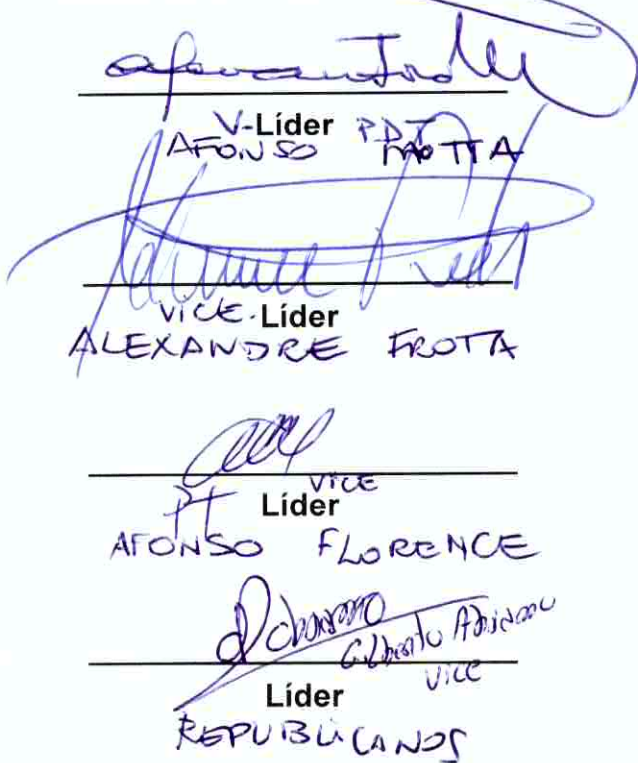 V-Líder PDT
AFONSO MOTTA
VICE-Líder
ALEXANDRE FROTA
VICE
PT Líder
AFONSO FLORENCE
Gilberto Abramo
VICE
Líder
REPUBLICANOS